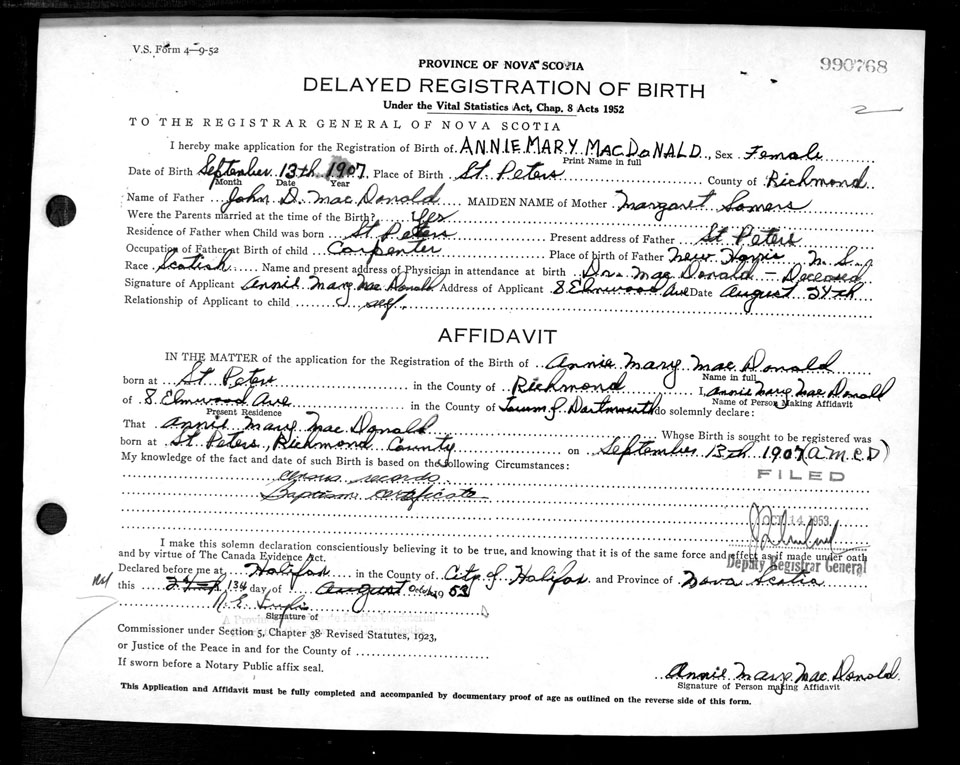 V.S. Form 4-9-52
PROVINCE OF NOVA SCOTIA
990768
DELAYED REGISTRATION OF BIRTH
Under the Vital Statistics Act, Chap. 8 Acts 1952
2
TO THE REGISTRAR GENERAL OF NOVA SCOTIA
I hereby make application for the Registration of Birth of ANNIE MARY MACDONALD, Sex Female
Print Name in full
Date of Birth September 13th 1907, Place of Birth St. Peters County of Richmond
Month Date Year
Name of Father John D. MacDonald MAIDEN NAME of Mother Margaret Somers
Were the Parents married at the time of the Birth? Yes
Residence of Father when Child was born St Peters Present address of Father St Peters
Occupation of Father at Birth of child Carpenter Place of birth of Father New Harris N.S.
Race Scotish Name and present address of Physician in attendance at birth Dr. MacDonald - Deceased
Signature of Applicant Annie Mary MacDonald Address of Applicant 8 Elmwood Ave Date August 24th
Relationship of Applicant to child self.
AFFIDAVIT
IN THE MATTER of the application for the Registration of the Birth of Annie Mary MacDonald
Name in full
born at St Peters in the County of Richmond I, Annie Mary MacDonald
Name of Person Making Affidavit
of 8 Elmwood Ave in the County of Town of Dartmouth do solemnly declare:
Present Residence
That Annie Mary MacDonald Whose Birth is sought to be registered was
born at St. Peters, Richmond County on September 13th 1907 (A.M.C.D)
My knowledge of the fact and date of such Birth is based on the following Circumstances:
FILED
census records
Baptism certificate
OCT 14 1953
I make this solemn declaration conscientiously believing it to be true, and knowing that it is of the same force and effect as if made under oath
and by virtue of The Canada Evidence Act.
Deputy Registrar General
Declared before me at Halifax in the County of City of Halifax and Province of Nova Scotia
this 24th 13th day of August October 1953
Signature of
Commissioner under Section 5, Chapter 38 Revised Statutes, 1923,
or Justice of the Peace in and for the County of
If sworn before a Notary Public affix seal.
Annie Mary MacDonald.
Signature of Person making Affidavit
This Application and Affidavit must be fully completed and accompanied by documentary proof of age as outlined on the reverse side of this form.